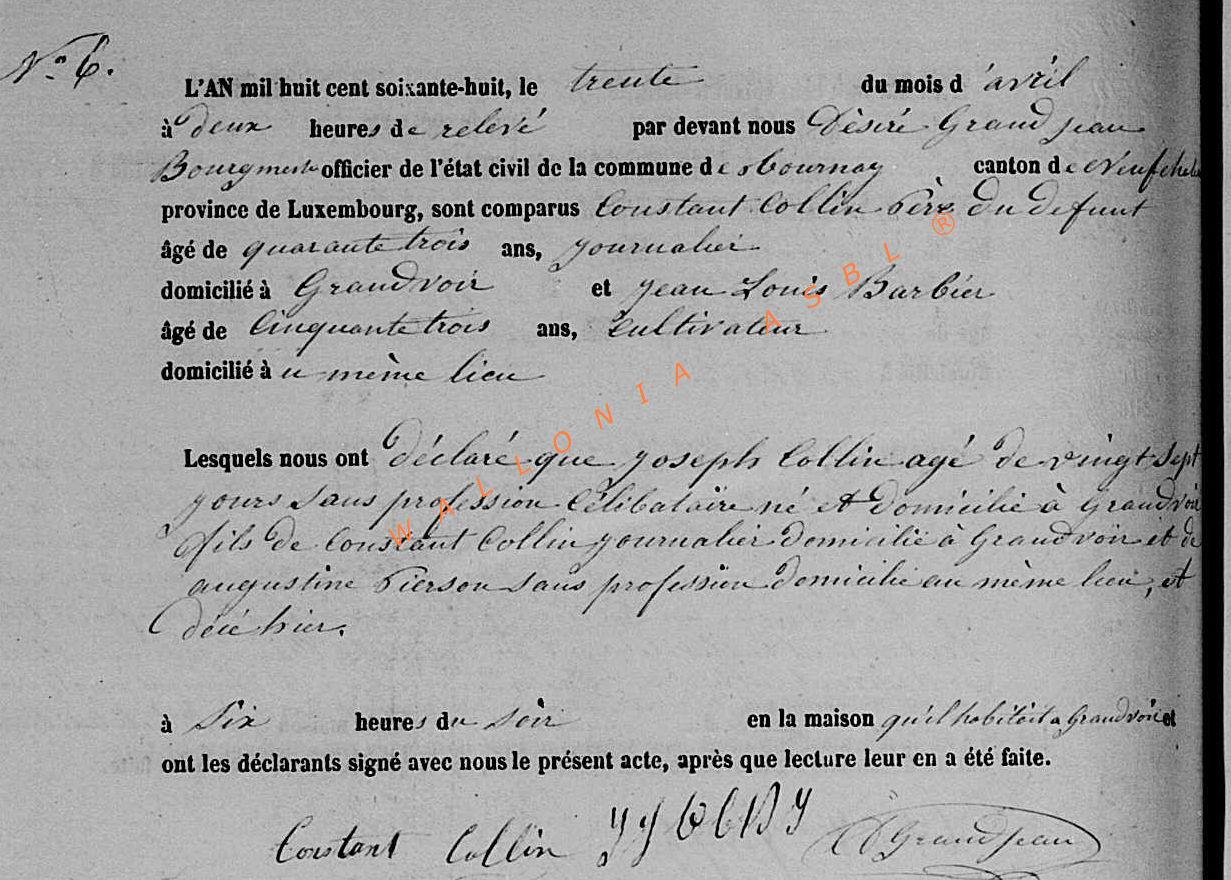 N.° 6.
L'AN mil huit cent soixante-huit, le trente du mois d'avril
à deux heures de relevé par devant nous Désiré Grand jean
Bourgmestre officier de l'état civil de la commune de canton de Neufchat
province de Luxembourg, sont comparus Constant Collin Père du defunt
âgé de quarante trois ans, journalier
domicilié à Grandvoir et jean Louis Barbier
âgé de Cinquante trois ans, Cultivateur
domicilié à u même lieu
Lesquels nous ont déclaré que joseph Collin agé de vingt sept
jours sans profession Célibataire né et domicilié à Grandvoir
fils de Constant Collin journalier domicilié à Grandvoir et de
augustine Pierson sans profession domicilié au même lieu, et
hier.
à Six heures du soir en la maison qu'il habitoit a Grandvoir et
ont les déclarants signé avec nous le présent acte, après que lecture leur en a été faite.
Constant Collin D Grandjean
WALLONIA ASBL ®